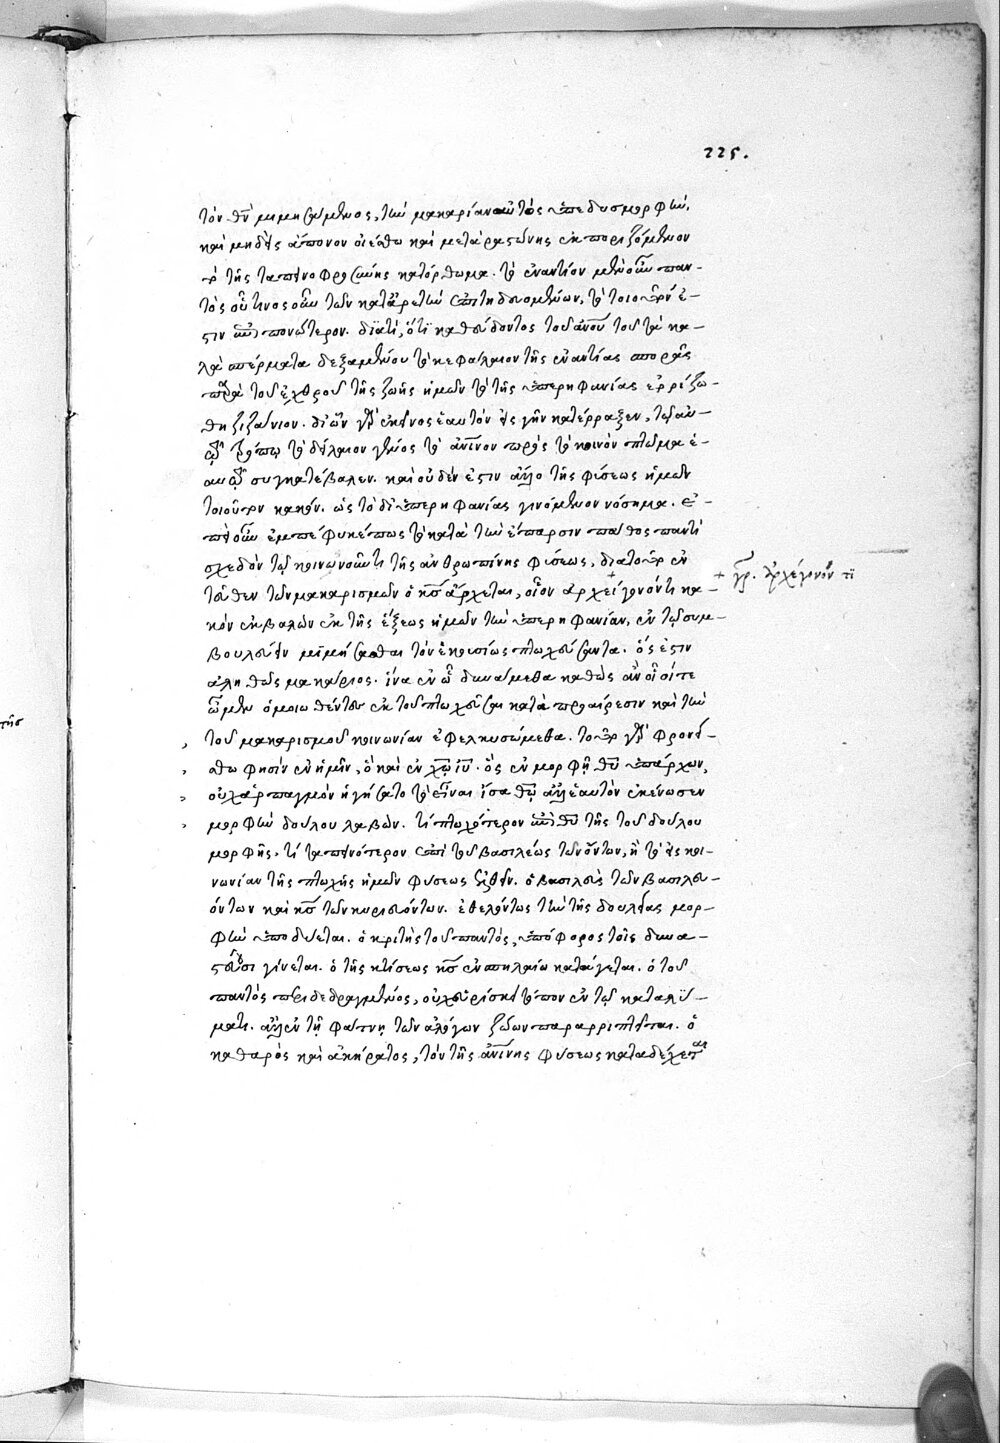 225.
τὸν θν̄ μιμησάμενος, τὴν μακαρίαν αὐτὸς ὑπεδὺς μορφήν.
καὶ μηδεὶς ἄπονον οἰέσθω καὶ μετὰ ῥαστώνης ἐκποριζόμενον
τὸ τῆς ταπεινοφροσύνης κατόρθωμα. τὸ ἐναντίον μὲν οὖν παν-
τὸς οὗτινος οὖν τῶν κατ' ἀρετὴν ἐπιτηδευομένων, τὸ τοιοῦτόν ἐ-
στιν ἐπιπονώτερον. διατί, ὅτι καθεύδοντος τοῦ ἀνου τοῦ τὰ κα-
λὰ σπέρματα δεξαμένου τὸ κεφάλαιον τῆς ἐναντίας σπορᾶς
παρὰ τοῦ ἐχθροῦ τῆς ζωῆς ἡμῶν τὸ τῆς ὑπερηφανίας ἐρριζώ-
θη ζιζάνιον. δι' ὧν γὰρ ἐκεῖνος ἑαυτὸν εἰς γῆν κατέρραξεν, τῷ αὐ-
τῷ τρόπῳ τὸ δείλαιον γένος τὸ ἀνινον πρὸς τὸ κοινὸν πτῶμα ἑ-
αυτῷ συγκατέβαλεν. καὶ οὐδέν ἐστιν ἄλλο τῆς φύσεως ἡμῶν
τοιοῦτον κακόν. ὡς τὸ δι' ὑπερηφανίας γινόμενον νόσημα. ἐ-
πεὶ οὖν ἐμπέφυκέ πως τὸ κατὰ τὴν ἔπαρσιν πάθος παντὶ
σχεδὸν τῷ κοινωνοῦντι τῆς ἀνθρωπίνης φύσεως, διὰ τοῦτο ἐν
τεῦθεν τῶν μακαρισμῶν ὁ κς ἄρχεται, οἷον ἀρχείγονόν τι κα- + γρ. ἀρχέγονόν τι
κὸν ἐκβαλὼν ἐκ τῆς ἕξεως ἡμῶν τὴν ὑπερηφανίαν, ἐν τῷ συμ-
βουλεύειν μιμήσασθαι τὸν ἑκουσίως πτωχεύσαντα. ὅς ἐστιν
ἀληθῶς μακάριος. ἵνα ἐν ᾧ δυνάμεθα καθὼς ἂν οἷοί τε
ὦμεν ὁμοιωθέντες ἐκ τοῦ πτωχεῦσαι κατὰ προαίρεσιν καὶ τὴν
τοῦ μακαρισμοῦ κοινωνίαν ἐφελκυσώμεθα. τοῦτο γὰρ φρονεί-
σθω φησὶν ἐν ἡμῖν, ὃ καὶ ἐν χῷ ιῦ. ὃς ἐν μορφῇ θῦ ὑπάρχων,
οὐχ ἁρπαγμὸν ἡγήσατο τὸ εἶναι ἴσα θῷ ἀλλ' ἑαυτὸν ἐκένωσεν
μορφὴν δούλου λαβών. τί πτωχότερον ἐπὶ θῦ τῆς τοῦ δούλου
μορφῆς. τί ταπεινότερον ἐπὶ τοῦ βασιλέως τῶν ὄντων, ἢ τὸ εἰς κοι-
νωνίαν τῆς πτωχῆς ἡμῶν φύσεως ἐλθεῖν. ὁ βασιλεὺς τῶν βασιλευ-
όντων καὶ κς τῶν κυριευόντων. ἐθελόντως τὴν τῆς δουλείας μορ-
φὴν ὑποδύεται. ὁ κριτὴς τοῦ παντὸς, ὑπόφορος τοῖς δυνα-
στεύουσι γίνεται. ὁ τῆς κτίσεως κς ἐν σπηλαίῳ κατάγεται. ὁ τοῦ
παντὸς περιδεδραγμένος, οὐχ εὑρίσκει τόπον ἐν τῷ καταλύ-
ματι. ἀλλ' ἐν τῇ φάτνῃ τῶν ἀλόγων ζώων παραρριπτεῖται. ὁ
καθαρὸς καὶ ἀκήρατος, τὸν τῆς ἀνίνης φύσεως καταδέχεται